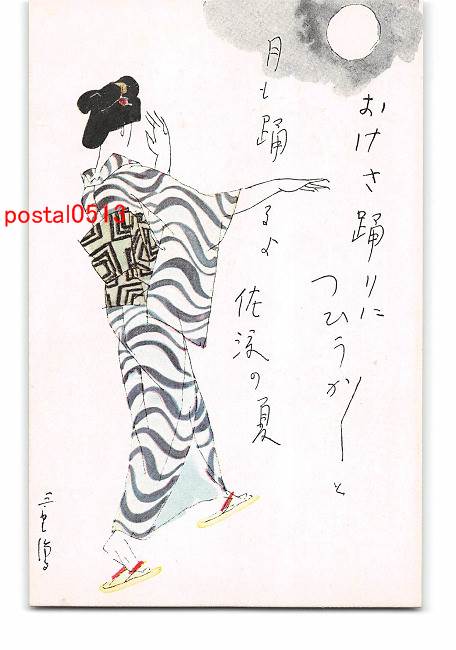 おけさ踊りに
つひうかうかと
月も踊るよ
佐渡の夏
postal0513